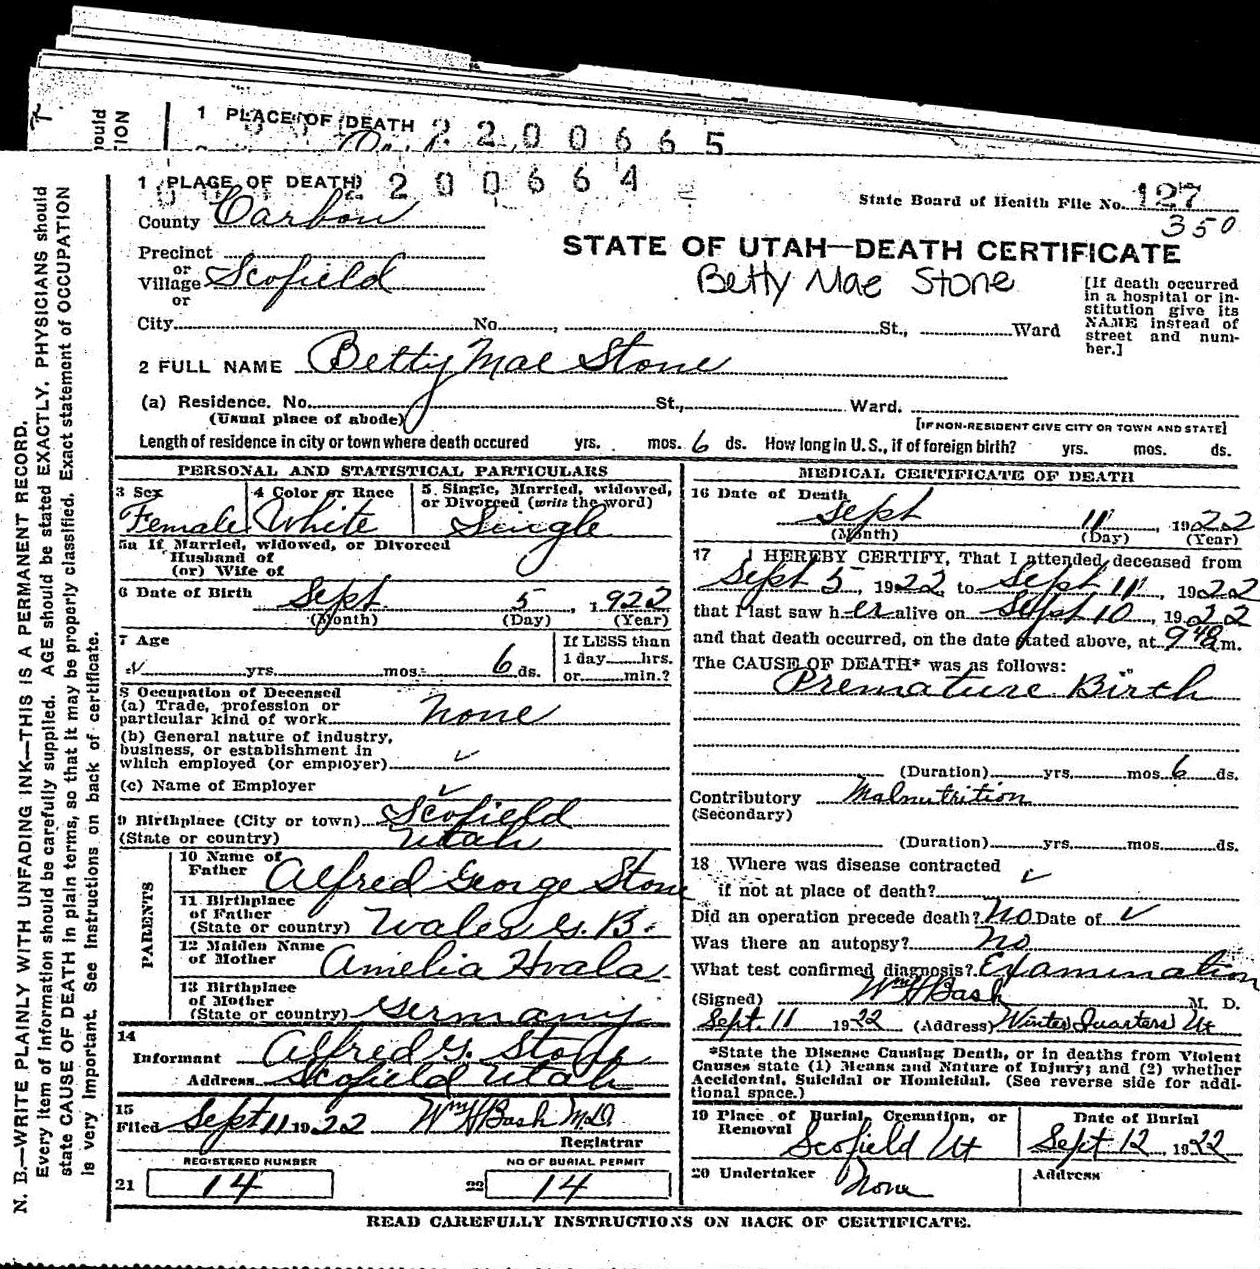 1 PLACE OF DEATH 2 2 0 0 6 6 5
ould
TION
1 PLACE OF DEATH 2 2 0 0 6 6 4
State Board of Health File No. 127
350
County Carbon
STATE OF UTAH—DEATH CERTIFICATE
Precinct
or
Village Scofield
or
Betty Mae Stone
[If death occurred
in a hospital or in-
stitution give its
NAME instead of
street and num-
ber.]
City No. , St., Ward
2 FULL NAME Betty Mae Stone
(a) Residence. No. St., Ward.
(Usual place of abode) [IF NON-RESIDENT GIVE CITY OR TOWN AND STATE]
Length of residence in city or town where death occured yrs. mos. 6 ds. How long in U.S., if of foreign birth? yrs. mos. ds.
PERSONAL AND STATISTICAL PARTICULARS
3 Sex
Female
4 Color or Race
White
5. Single, Married, widowed,
or Divorced (write the word)
Single
5a If Married, widowed, or Divorced
Husband of
(or) Wife of
6 Date of Birth Sept 5, 1922
(Month) (Day) (Year)
7 Age
yrs. mos. 6 ds.
If LESS than
1 day hrs.
or min.?
8 Occupation of Deceased
(a) Trade, profession or
particular kind of work None
(b) General nature of industry,
business, or establishment in
which employed (or employer) ✓
(c) Name of Employer ✓
9 Birthplace (City or town) Scofield
(State or country) Utah
PARENTS
10 Name of
Father Alfred George Stone
11 Birthplace
of Father
(State or country) Wales G. B.
12 Maiden Name
of Mother Amelia Hvala
13 Birthplace
of Mother
(State or country) Germany
14
Informant Alfred G. Stone
Address Scofield Utah
15
Filed Sept 11 1922 Wm H Bash M.D.
Registrar
REGISTERED NUMBER
21 14
NO OF BURIAL PERMIT
22 14
MEDICAL CERTIFICATE OF DEATH
16 Date of Death
Sept 11, 1922
(Month) (Day) (Year)
17 I HEREBY CERTIFY, That I attended deceased from
Sept 5, 1922, to Sept 11, 1922
that I last saw her alive on Sept 10, 1922
and that death occurred, on the date stated above, at 9 48 a m.
The CAUSE OF DEATH* was as follows:
Premature Birth
(Duration) yrs. mos. 6 ds.
Contributory Malnutrition
(Secondary)
(Duration) yrs. mos. ds.
18 Where was disease contracted
if not at place of death? ✓
Did an operation precede death? No. Date of ✓
Was there an autopsy? No
What test confirmed diagnosis? Examination
(Signed) Wm H Bash M. D.
Sept. 11 1922 (Address) Winter Quarters Ut
*State the Disease Causing Death, or in deaths from Violent
Causes state (1) Means and Nature of Injury; and (2) whether
Accidental, Suicidal or Homicidal. (See reverse side for addi-
tional space.)
19 Place of Burial, Cremation, or
Removal
Scofield Ut
Date of Burial
Sept 12, 1922
20 Undertaker
None
Address
READ CAREFULLY INSTRUCTIONS ON BACK OF CERTIFICATE.
N. B.—WRITE PLAINLY WITH UNFADING INK—THIS IS A PERMANENT RECORD.
Every item of information should be carefully supplied. AGE should be stated EXACTLY. PHYSICIANS should
state CAUSE OF DEATH in plain terms, so that it may be properly classified. Exact statement of OCCUPATION
is very important. See Instructions on back of certificate.